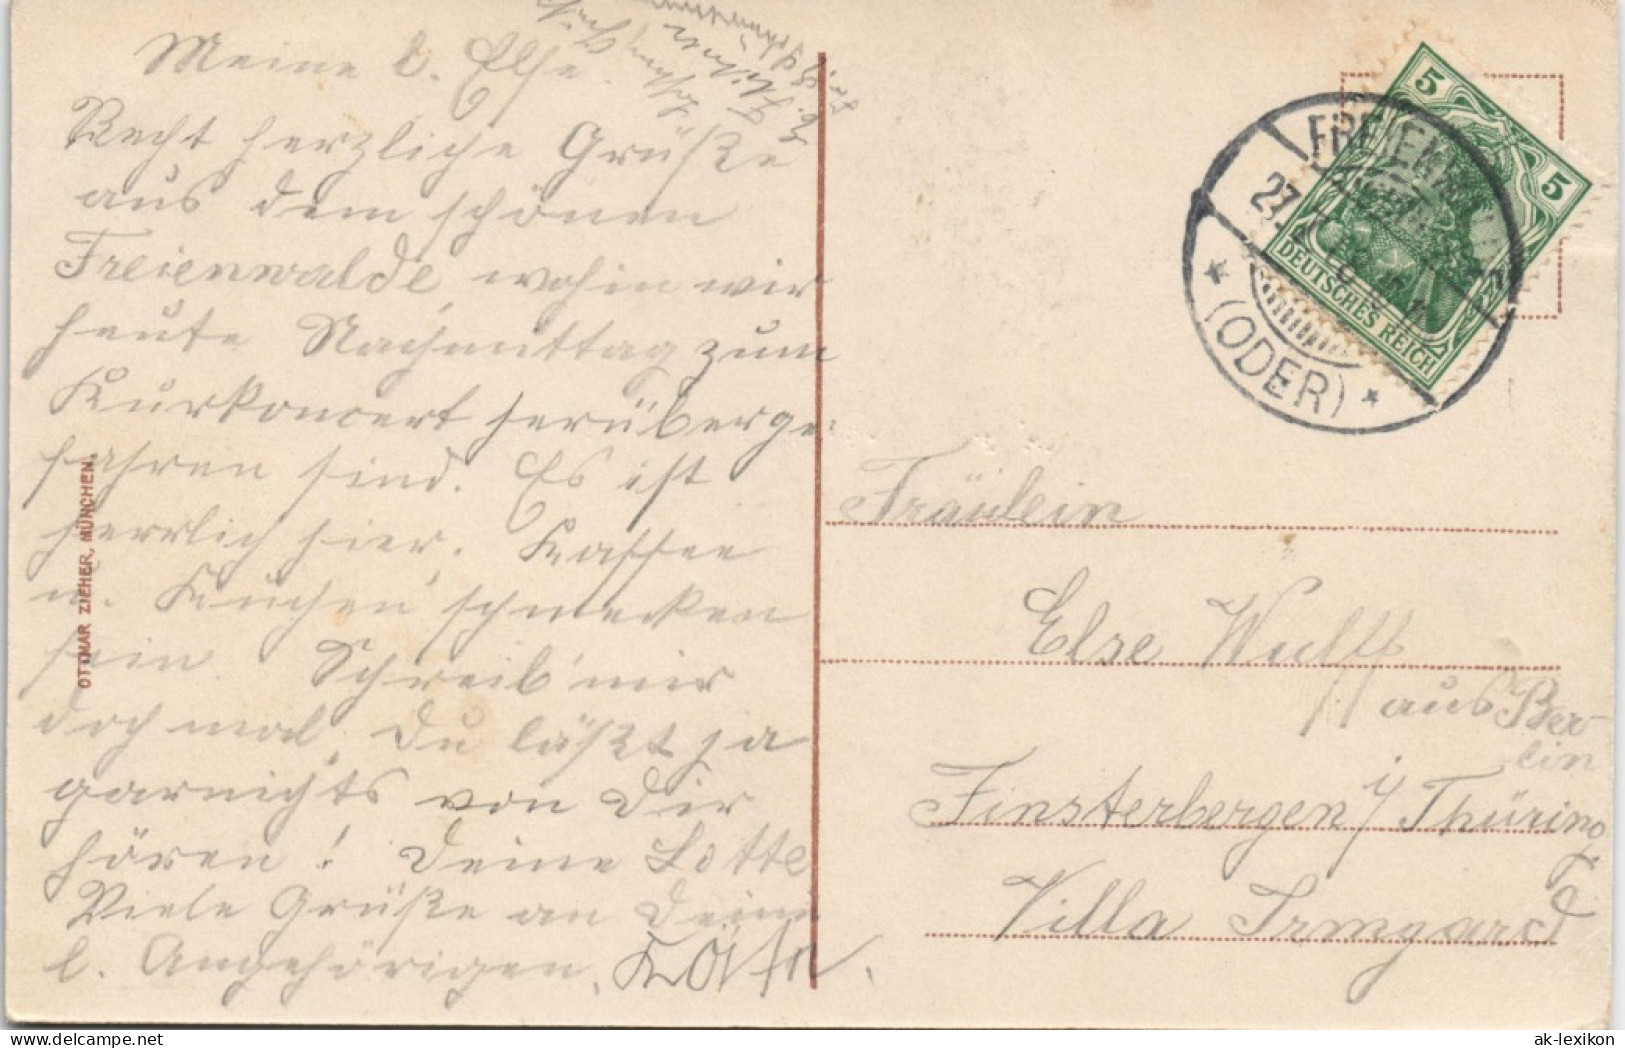 Meine l. Else.
Recht herzliche Grüße
aus dem schönen
Freienwalde, wohin wir
heute Nachmittag zum
Kurkoncert herüberge-
fahren sind. Es ist
herrlich hier. Kaffee
u. Kuchen schmecken
fein Schreib' mir
doch mal. Du läßt ja
garnichts von Dir
hören! Deine Lotte
Viele Grüße an Deine
l. Angehörigen.
OTTMAR ZIEHER, MÜNCHEN.
5
5
DEUTSCHES REICH
FREIENWALDE
(ODER)
Fräulein
Else Wulff
aus Ber-
lin
Finsterbergen i/ Thüring.
Villa Irmgard
ak-lexikon